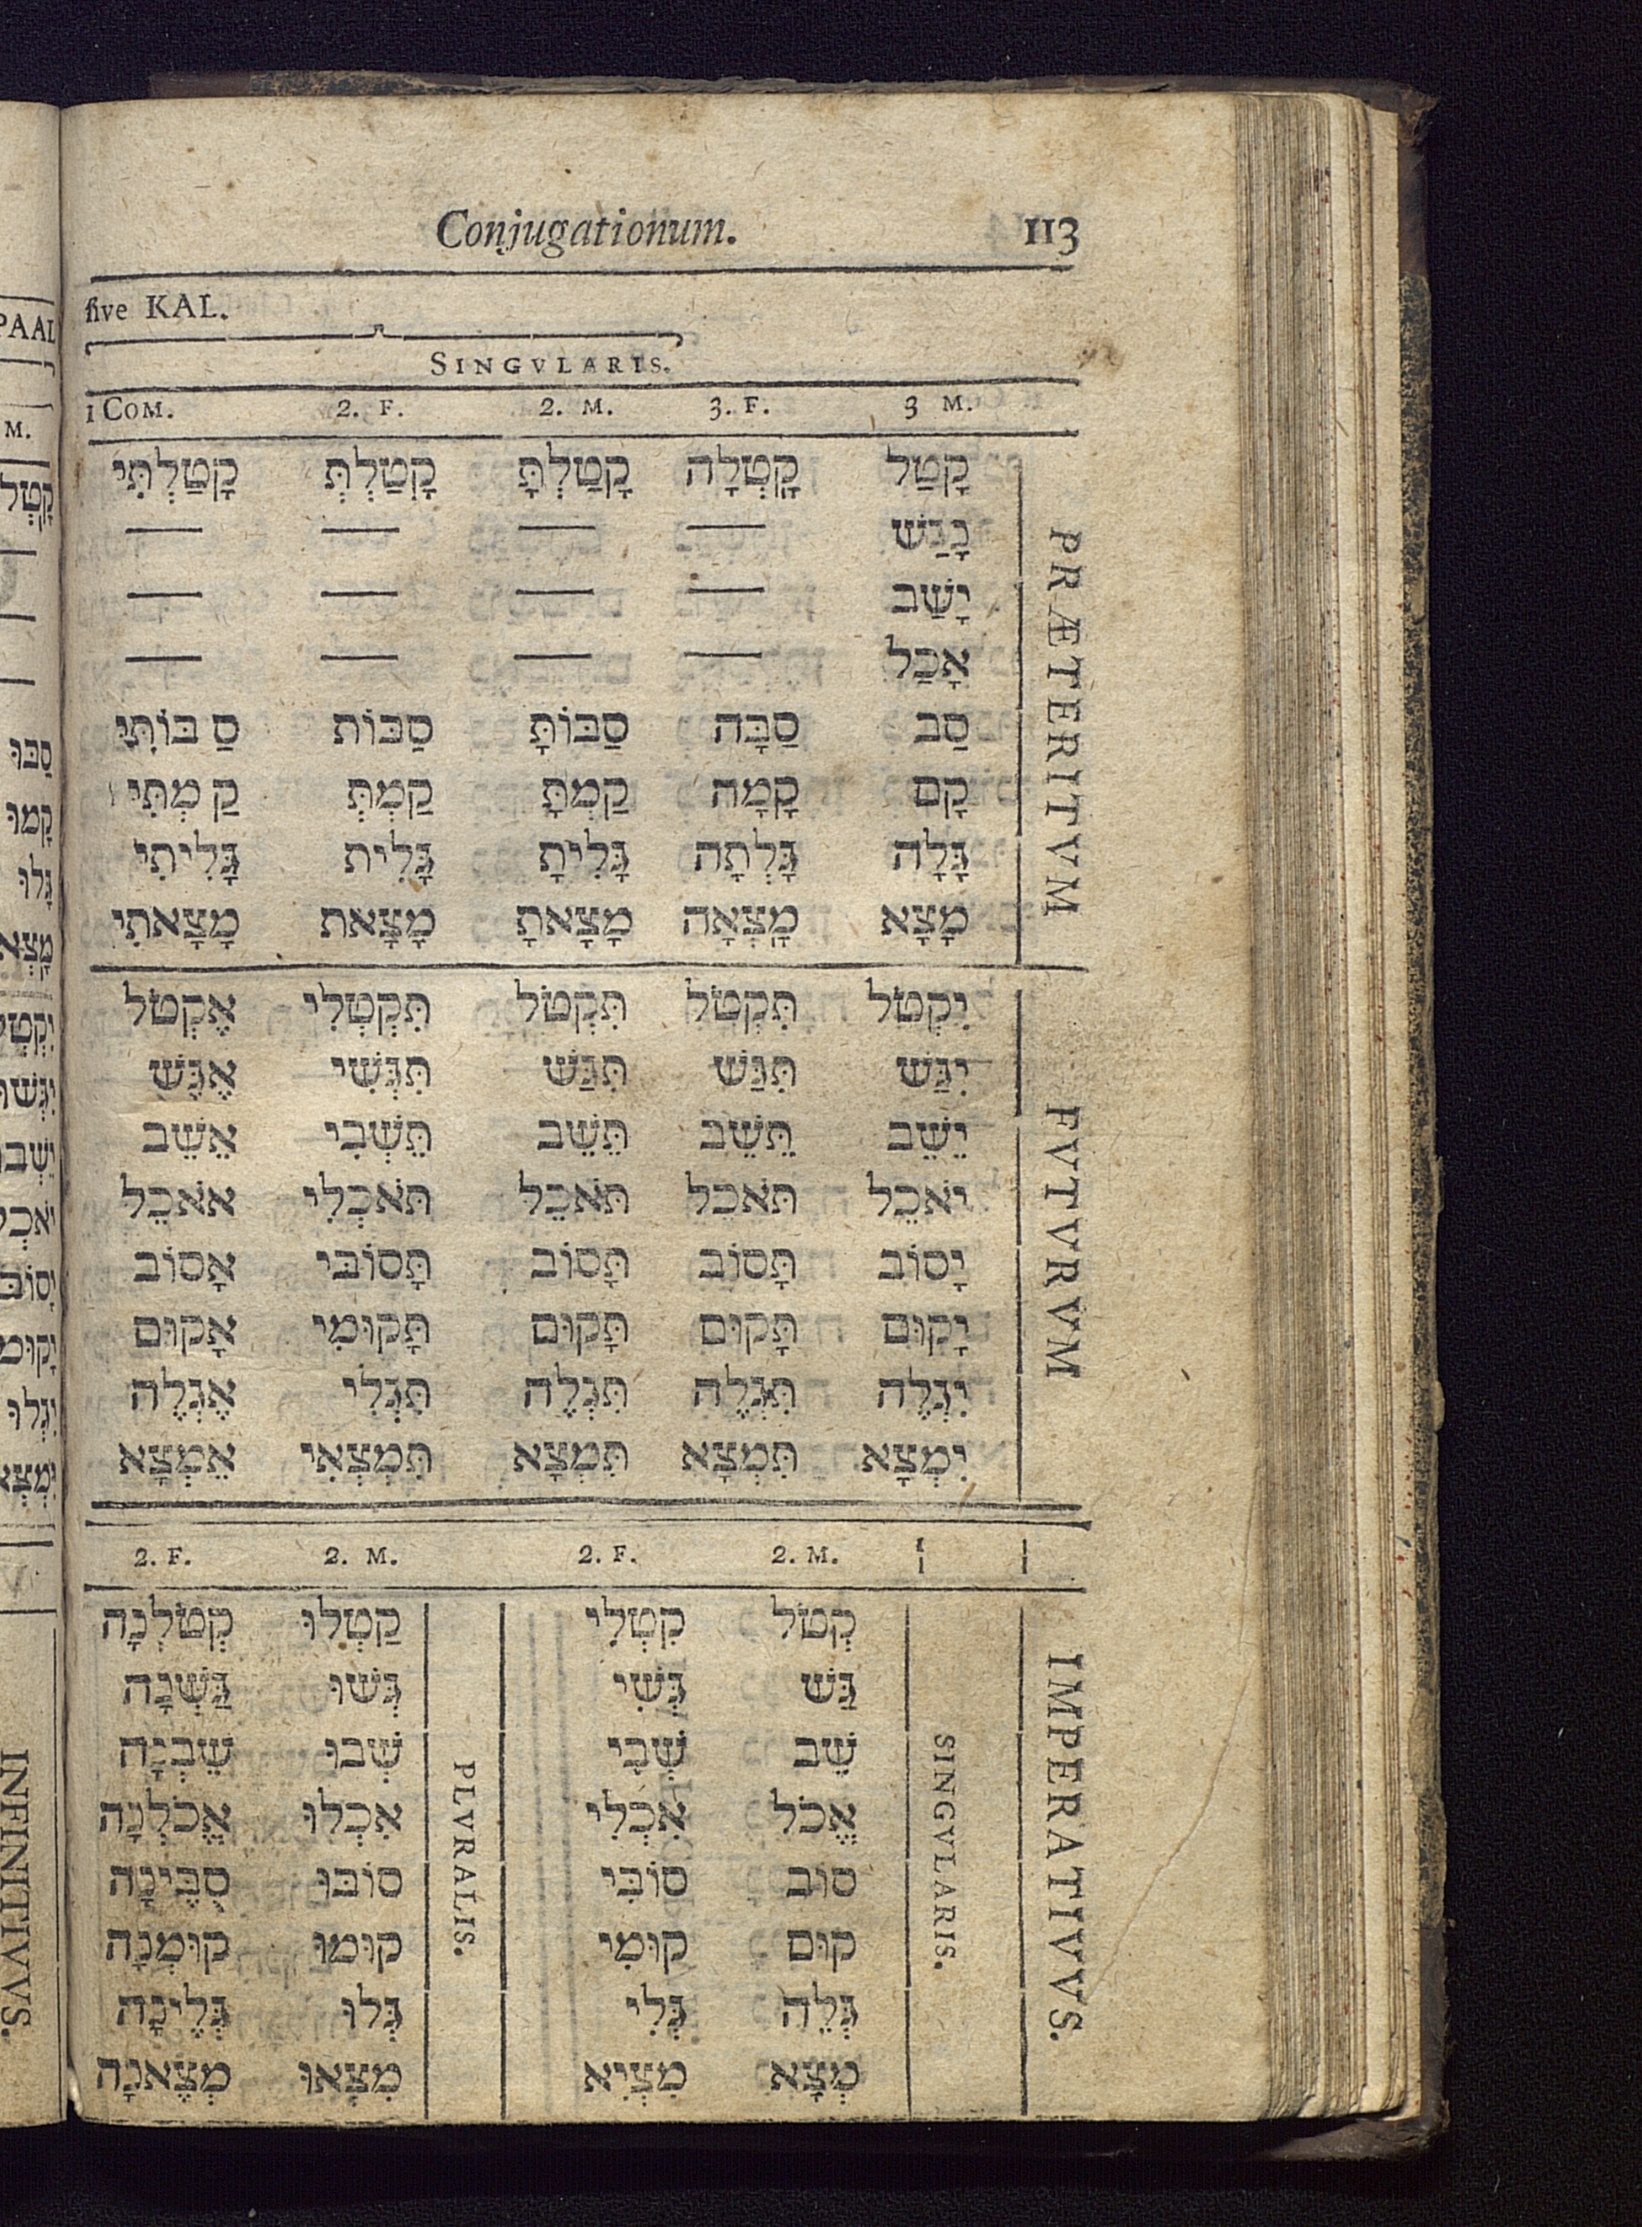 Conjugationum. 113
sive KAL.
SINGVLARIS.
1 COM. 2. F. 2. M. 3. F. 3 M.
PRÆTERITVM
קָטַל קָֽטְלָה קָטַלְתָּ קָטַלְתְּ קָטַלְתִּי
נָגַשׁ — — — —
יָשַׁב — — — —
אָכַל — — — —
סַב סַבָּה סַבּוֹתָּ סַבּוֹת סַבּוֹתִּי
קָם קָמָה קַמְתָּ קַמְתְּ קַמְתִּי
גָּלָה גָּלְתָה גָּלִיתָ גָּלִית גָּלִיתִי
מָצָא מָֽצְאָה מָצָאתָ מָצָאת מָצָאתִי
FVTVRVM
יִקְטֹל תִּקְטֹל תִּקְטֹל תִּקְטְלִי אֶקְטֹל
יִגַּשׁ תִּגַּשׁ תִּגַּשׁ תִּגְּשִׁי אֶגַּשׁ
יֵשֵׁב תֵּשֵׁב תֵּשֵׁב תֵּשְׁבִי אֵשֵׁב
יֹאכֵל תֹּאכֵל תֹּאכֵל תֹּאכְלִי אֹאכֵל
יָסוֹב תָּסוֹב תָּסוֹב תָּסוֹבִּי אָסוֹב
יָקוּם תָּקוּם תָּקוּם תָּקוּמִי אָקוּם
יִגְלֶה תִּגְלֶה תִּגְלֶה תִּגְלִי אֶגְלֶה
יִמְצָא תִּמְצָא תִּמְצָא תִּמְצְאִי אֶמְצָא
2. F. 2. M. 2. F. 2. M.
IMPERATIVVS.
SINGVLARIS.
PLVRALIS.
קְטֹל קִטְלִי קַטְלוּ קְטֹלְנָה
גַּשׁ גְּשִׁי גְּשׁוּ גַּשְׁנָה
שֵׁב שְׁבִי שְׁבוּ שֵׁבְנָה
אֱכֹל אִכְלִי אִכְלוּ אֱכֹלְנָה
סוֹב סוֹבִּי סוֹבּוּ סֻבֶּינָה
קוּם קוּמִי קוּמוּ קוּמְנָה
גְּלֵה גְּלִי גְּלוּ גְּלֶינָה
מְצָא מִצְיִא מִצְאוּ מְצֶאנָה
PAAL
M.
סַבּוּ
קָמוּ
גָּלוּ
INFINITIVVS.